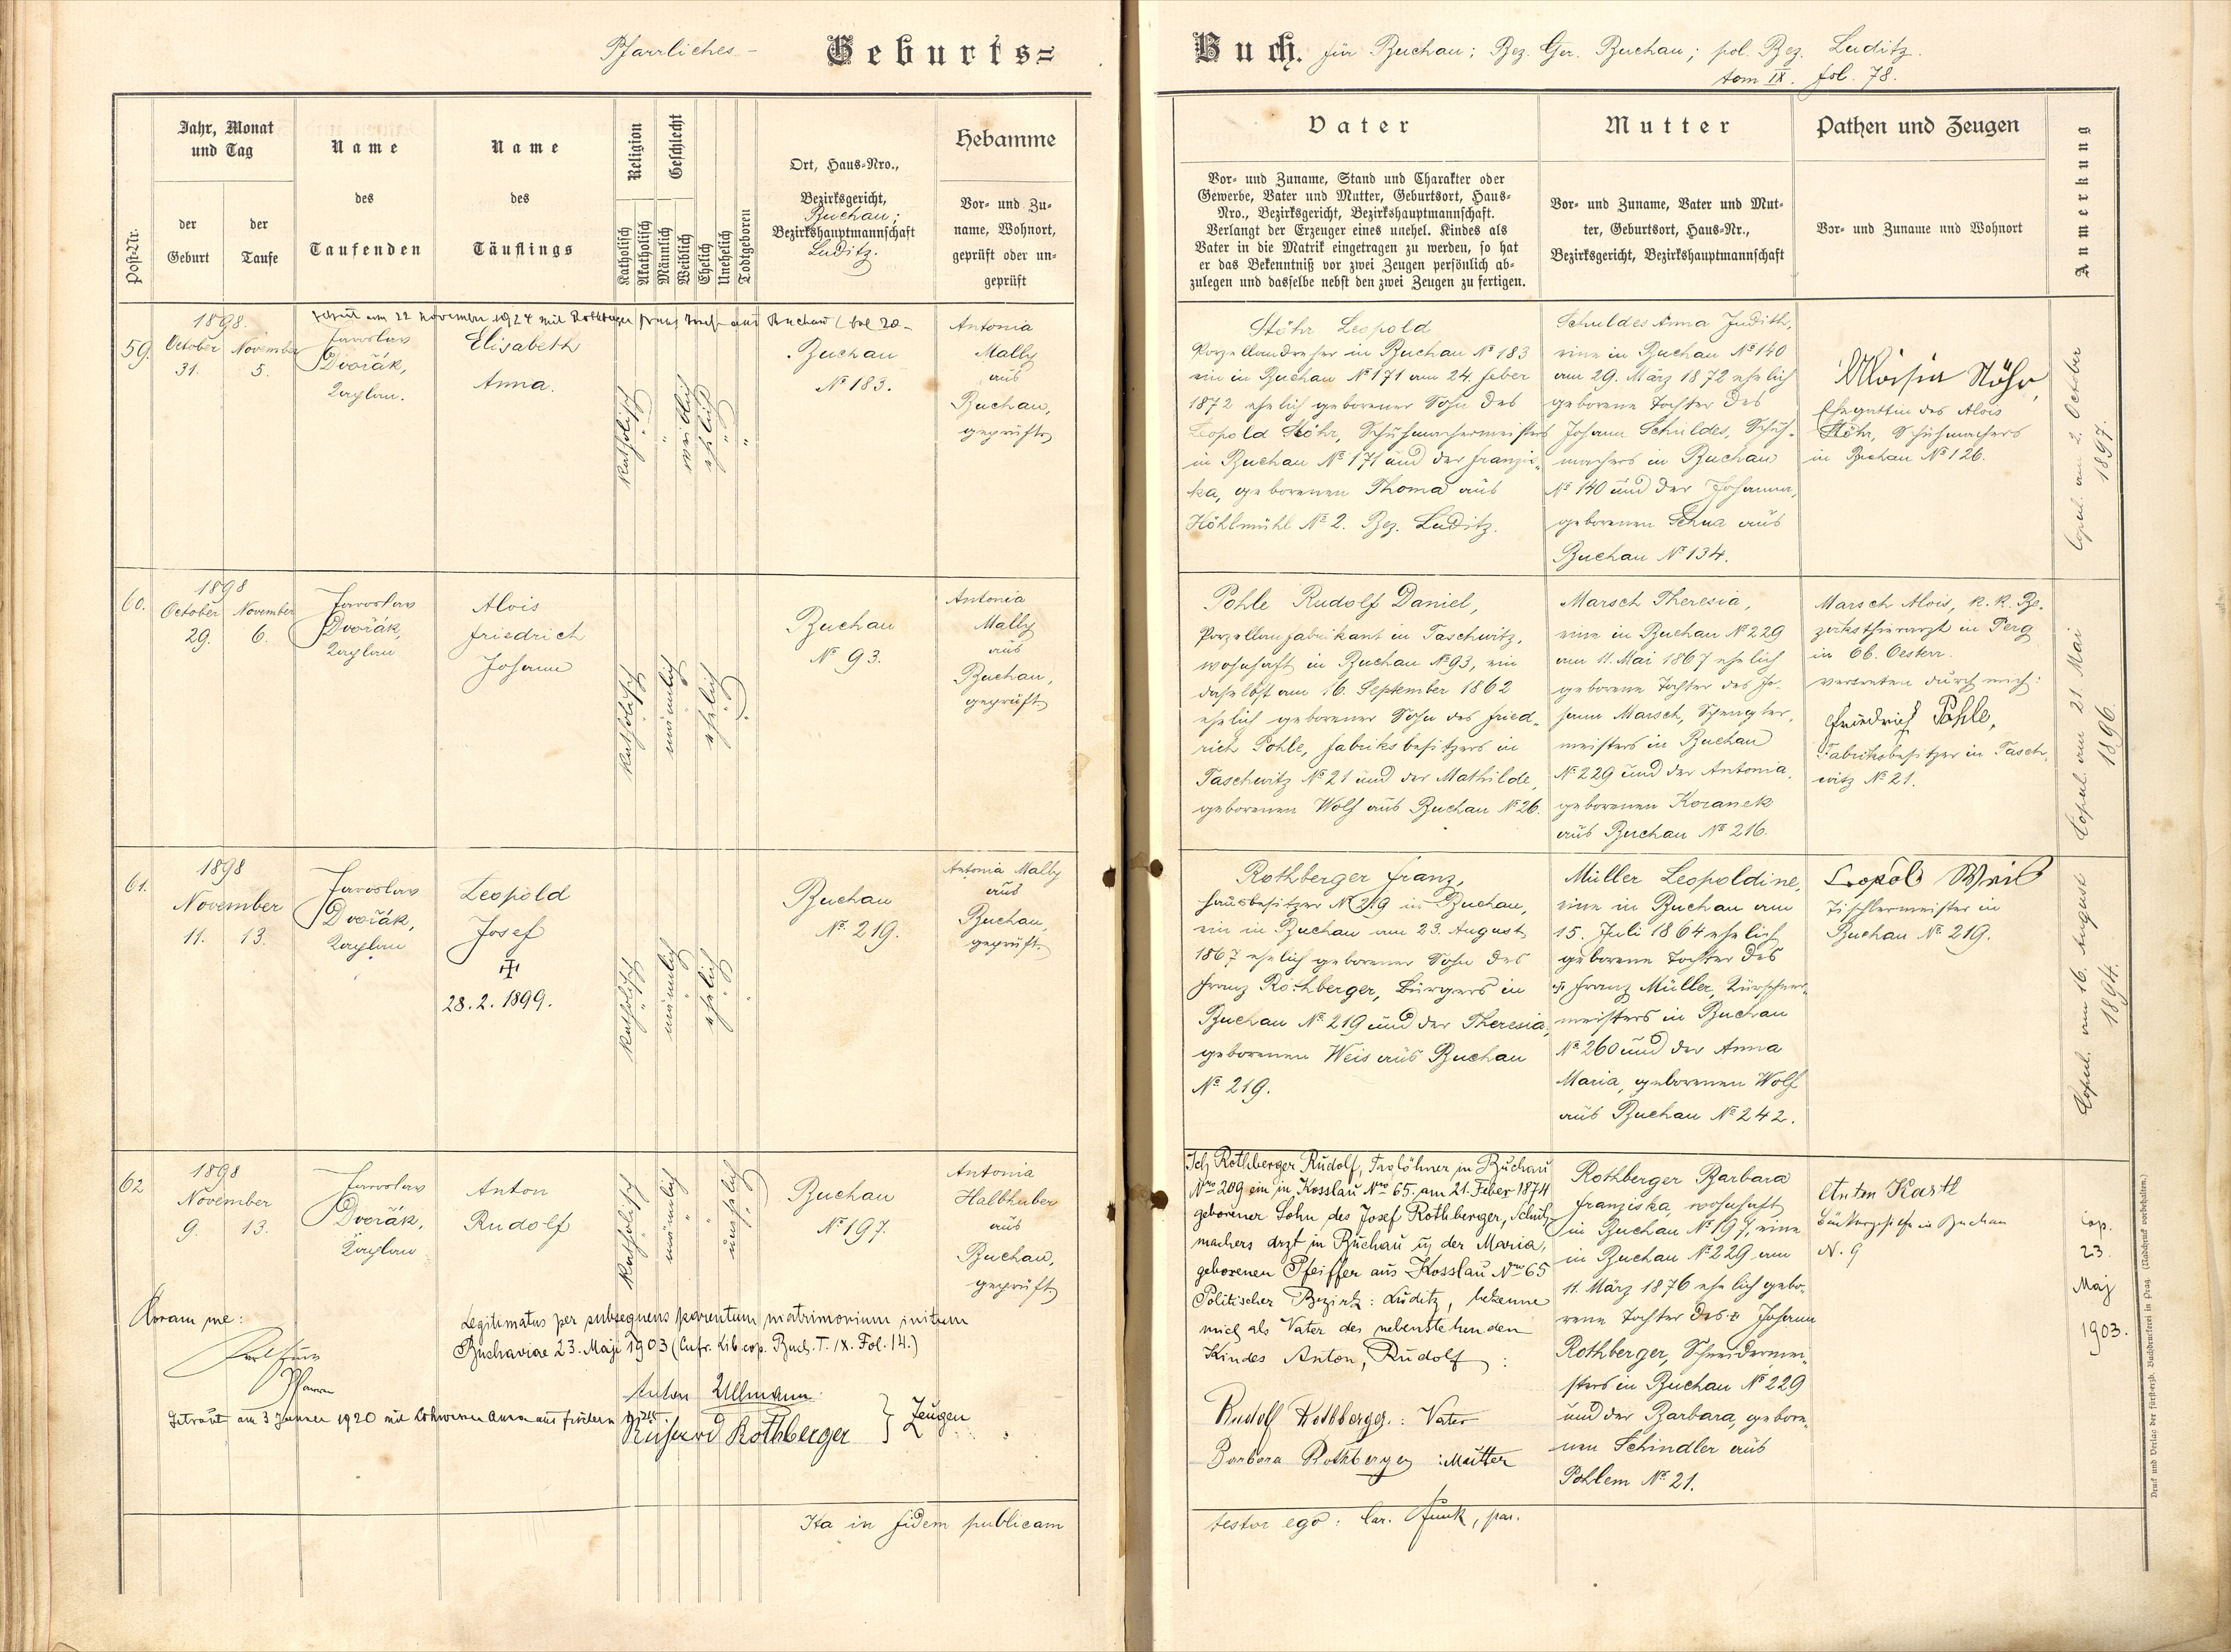 Pfarrliches - Geburts=
Buch. für Buchau; Bez. Ger. Buchau; pol. Bez. Luditz.
tom IX. fol. 78.
Post-Nr.
Jahr, Monat
und Tag
der
Geburt
der
Taufe
Name
des
Taufenden
Name
des
Täuflings
Religion
Katholisch
Akatholisch
Geschlecht
Männlich
Weiblich
Ehelich
Unehelich
Todtgeboren
Ort, Haus-Nro.,
Bezirksgericht,
Buchau;
Bezirkshauptmannschaft
Luditz.
Hebamme
Vor- und Zu-
name, Wohnort,
geprüft oder un-
geprüft
Vater
Vor- und Zuname, Stand und Charakter oder
Gewerbe, Vater und Mutter, Geburtsort, Haus-
Nro., Bezirksgericht, Bezirkshauptmannschaft.
Verlangt der Erzeuger eines unehel. Kindes als
Vater in die Matrik eingetragen zu werden, so hat
er das Bekenntniß vor zwei Zeugen persönlich ab-
zulegen und dasselbe nebst den zwei Zeugen zu fertigen.
Mutter
Vor- und Zuname, Vater und Mut-
ter, Geburtsort, Haus-Nr.,
Bezirksgericht, Bezirkshauptmannschaft
Pathen und Zeugen
Vor- und Zuname und Wohnort
Anmerkung
am 22 November 1924 mit Rothberger Franz aus Buchau
59.
1898.
October November
31. 5.
Jaroslav
Dvořák,
Kaplan.
Elisabeth
Anna.
katholisch
"
weiblich
ehelich
"
"
Buchau
№ 183.
Antonia
Mally
aus
Buchau,
geprüft
Stöhr Leopold
Porzellandreher in Buchau № 183
ein in Buchau № 171 am 24. Feber
1872 ehelich geborener Sohn des
Leopold Stöhr, Schuhmachermeisters
in Buchau № 171 und der Franzis-
ka, geborenen Thoma aus
Höhlmühl № 2. Bez. Luditz.
Schuldes Anna Judith,
eine in Buchau № 140
am 29. März 1872 ehelich
geborene Tochter des
Johann Schuldes, Schuh-
machers in Buchau
№ 140 und der Johanna,
geborenen Schua aus
Buchau № 134.
Aloisia Stöhr,
Ehegattin des Alois
Stöhr, Schuhmachers
in Buchau № 126.
Copul. am 2. October
1897.
60.
1898
October November
29. 6.
Jaroslav
Dvořák,
Kaplan
Alois
Friedrich
Johann
katholisch
männlich
ehelich
Buchau
№ 93.
Antonia
Mally
aus
Buchau,
geprüft
Pohle Rudolf Daniel,
Porzellanfabrikant in Taschwitz,
wohnhaft in Buchau № 93, ein
daselbst am 16. September 1862
ehelich geborener Sohn des Fried-
rich Pohle, Fabriksbesitzers in
Taschwitz № 21 und der Mathilde,
geborenen Wolf aus Buchau № 26.
Marsch Theresia,
eine in Buchau № 229
am 11. Mai 1867 ehelich
geborene Tochter des Jo-
hann Marsch, Spengler-
meisters in Buchau
№ 229 und der Antonia,
geborenen Koranek
aus Buchau № 216.
Marsch Alois, k. k. Be-
zirksthierarzt in Perg
in Ob. Oesterr.
vertreten durch mich:
Friedrich Pohle,
Fabriksbesitzer in Tasch-
witz № 21.
Copul. am 21. Mai
1896.
61.
1898
November
11. 13.
Jaroslav
Dvořák,
Kaplan
Leopold
Josef
✝
28. 2. 1899.
katholisch
männlich
ehelich
Buchau
№ 219.
Antonia Mally
aus
Buchau,
geprüft
Rothberger Franz,
Hausbesitzer № 219 in Buchau,
ein in Buchau am 23. August
1867 ehelich geborener Sohn des
Franz Rothberger, Bürgers in
Buchau № 219 und der Theresia,
geborenen Weis aus Buchau
№ 219.
Müller Leopoldine,
eine in Buchau am
15. Juli 1864 ehelich
geborene Tochter des
✝ Franz Müller, Kürschner-
meisters in Buchau
№ 260 und der Anna
Maria, geborenen Wolf
aus Buchau № 242.
Leopold Weis
Tischlermeister in
Buchau № 219.
Copul. am 16. August
1894.
62
1898
November
9. 13.
Jaroslav
Dvořák,
Kaplan
Anton
Rudolf
katholisch
männlich
unehelich
Buchau
№ 197.
Antonia
Halbhuber
aus
Buchau,
geprüft
Ich Rothberger Rudolf, Taglöhner in Buchau
Nro 209 ein in Kosslau Nro 65. am 21. Feber 1874
geborener Sohn des Josef Rothberger, Schuh-
machers drzt in Buchau u. der Maria,
geborenen Pfeiffer aus Kosslau Nro 65
Politischer Bezirk: Luditz, bekenne
mich als Vater des nebenstehenden
Kindes Anton, Rudolf:
Rudolf Rothberger: Vater
Barbara Rothberger: Mutter
Rothberger Barbara
Franziska, wohnhaft
in Buchau № 197, eine
in Buchau № 229 am
11. März 1876 ehelich gebo-
rene Tochter des ✝ Johann
Rothberger, Schneidermei-
sters in Buchau № 229
und der Barbara, gebore-
nen Schindler aus
Pohlem № 21.
Anton Kastl
in Buchau
N. 9
Cop.
23.
Maj
1903.
Coram me:
Pfarrer
Legitimatus per subsequens parentum matrimonium initum
Buchaviae 23. Maji 1903 (Cufr. Lib. cop. Buch. T. IX. Fol. 14.)
Anton Ullmann
Richard Rothberger } Zeugen
Getraut am 3 Jänner 1920 mit Anna aus
Ita in fidem publicam
testor ego: Car. Funk, par.
Druck und Verlag der fürsterzb. Buchdruckerei in Prag. (Nachdruck vorbehalten.)